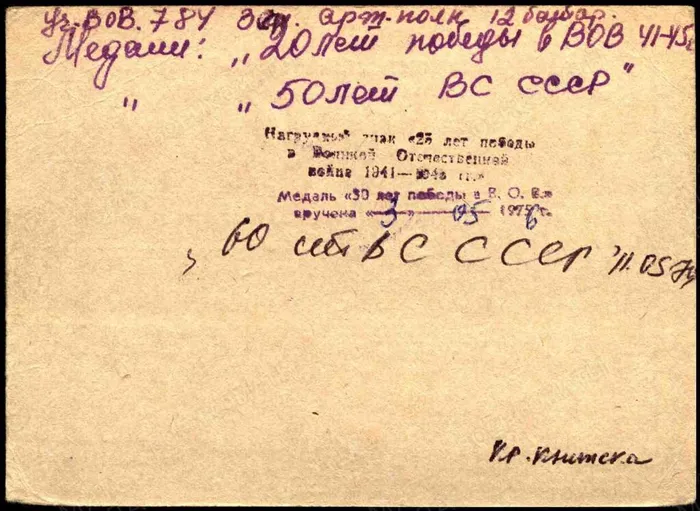 Уч. ВОВ. 784 Зен. арт. полк 12
Медали: "20 лет победы в ВОВ 41-45г
" "50 лет ВС СССР"
Нагрудный знак «25 лет победы
в Великой Отечественной
войне 1941—1945 гг.»
Медаль «30 лет победы в В. О. В.»
вручена «3» 05 1976 г.
"60 лет ВС СССР" 11.05.79
Кр. книжка